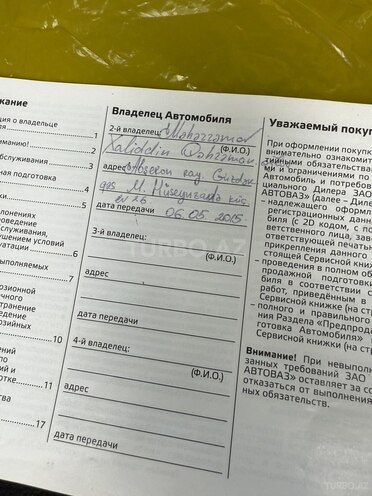 кание
ция о владельце
1
ниманию!
2
бслуживания
ная подготовка
ки
лонениях
роведение
служивания,
рушением условий
уатации
ыполняемых
7
озионной
ичного
странение
введению
розийных
10
ений
ий и
отке
11
ства
17
Владелец Автомобиля
2-й владелец: Məhərrəmov
(Ф.И.О.)
Xaliddin Qəhrəman
адрес Abşeron ray.
qəs M. Hüseynzadə küç
ev 26
дата передачи 06.05 2015
3-й владелец:
(Ф.И.О.)
адрес
дата передачи
4-й владелец:
(Ф.И.О.)
адрес
дата передачи
Уважаемый покуп
При оформлении покуп
внимательно ознакомит
тийными обязательства
ми и ограничениями по
Автомобиль и потребов
циального Дилера ЗАО
АВТОВАЗ» (далее – Дил
– надлежащего оформл
регистрационных данн
(с 2D кодом, с по
ветственного лица, зав
ответствующей печать
прикрепления данного
стоящей Сервисной книжки (на
– проведения в полном об
продажной подготовки
биля в соответствии с
работ, приведённым в
Сервисной книжке (на ст
– полного и правильного
ния Раздела «Предпрода
готовка Автомобиля»
Сервисной книжки (на стр
Внимание! При невыполн
занных требований ЗАО
АВТОВАЗ» оставляет за со
отказаться от выполнени
ных обязательств.
TURBO.AZ
TURBO.AZ